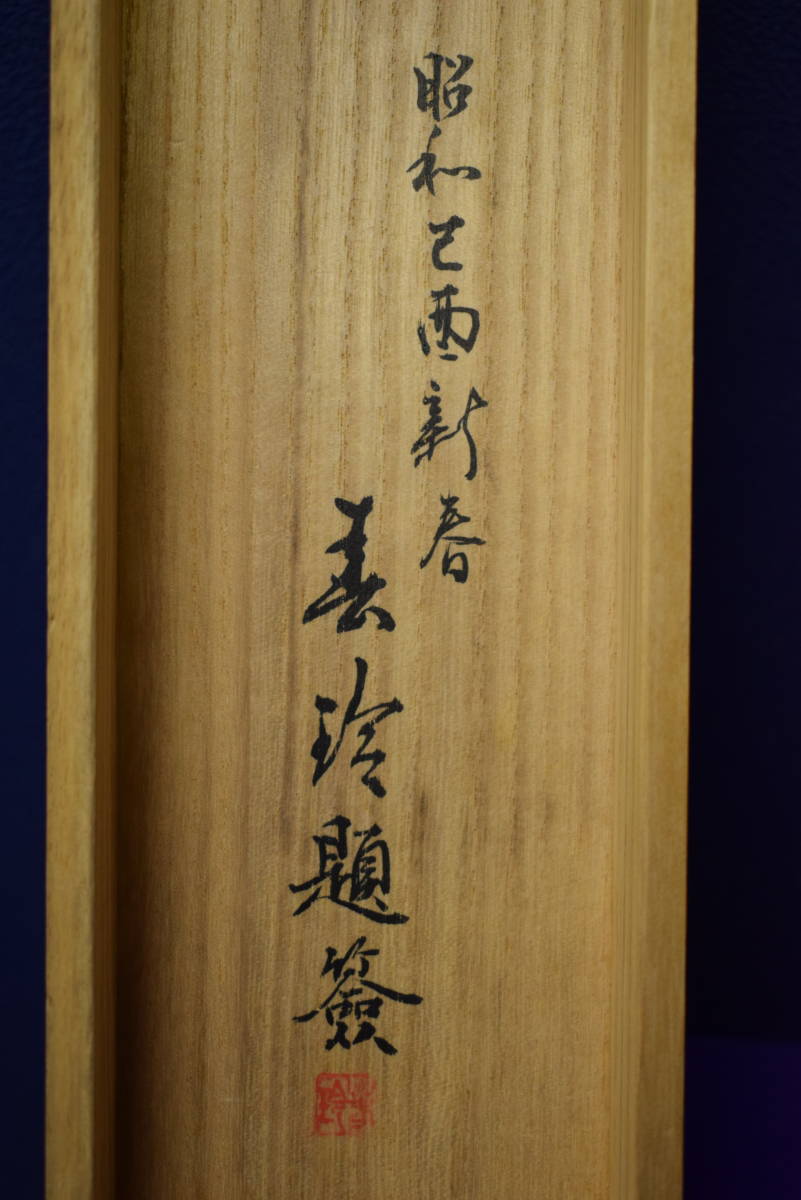 昭和己酉新春
春玲題簽